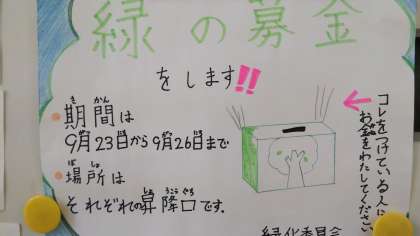 緑の募金
をします!!
期間は
9月23日から9月26日まで
場所は
それぞれの昇降口です。
コレをつけている人に
お金をわたしてください
緑化委員会